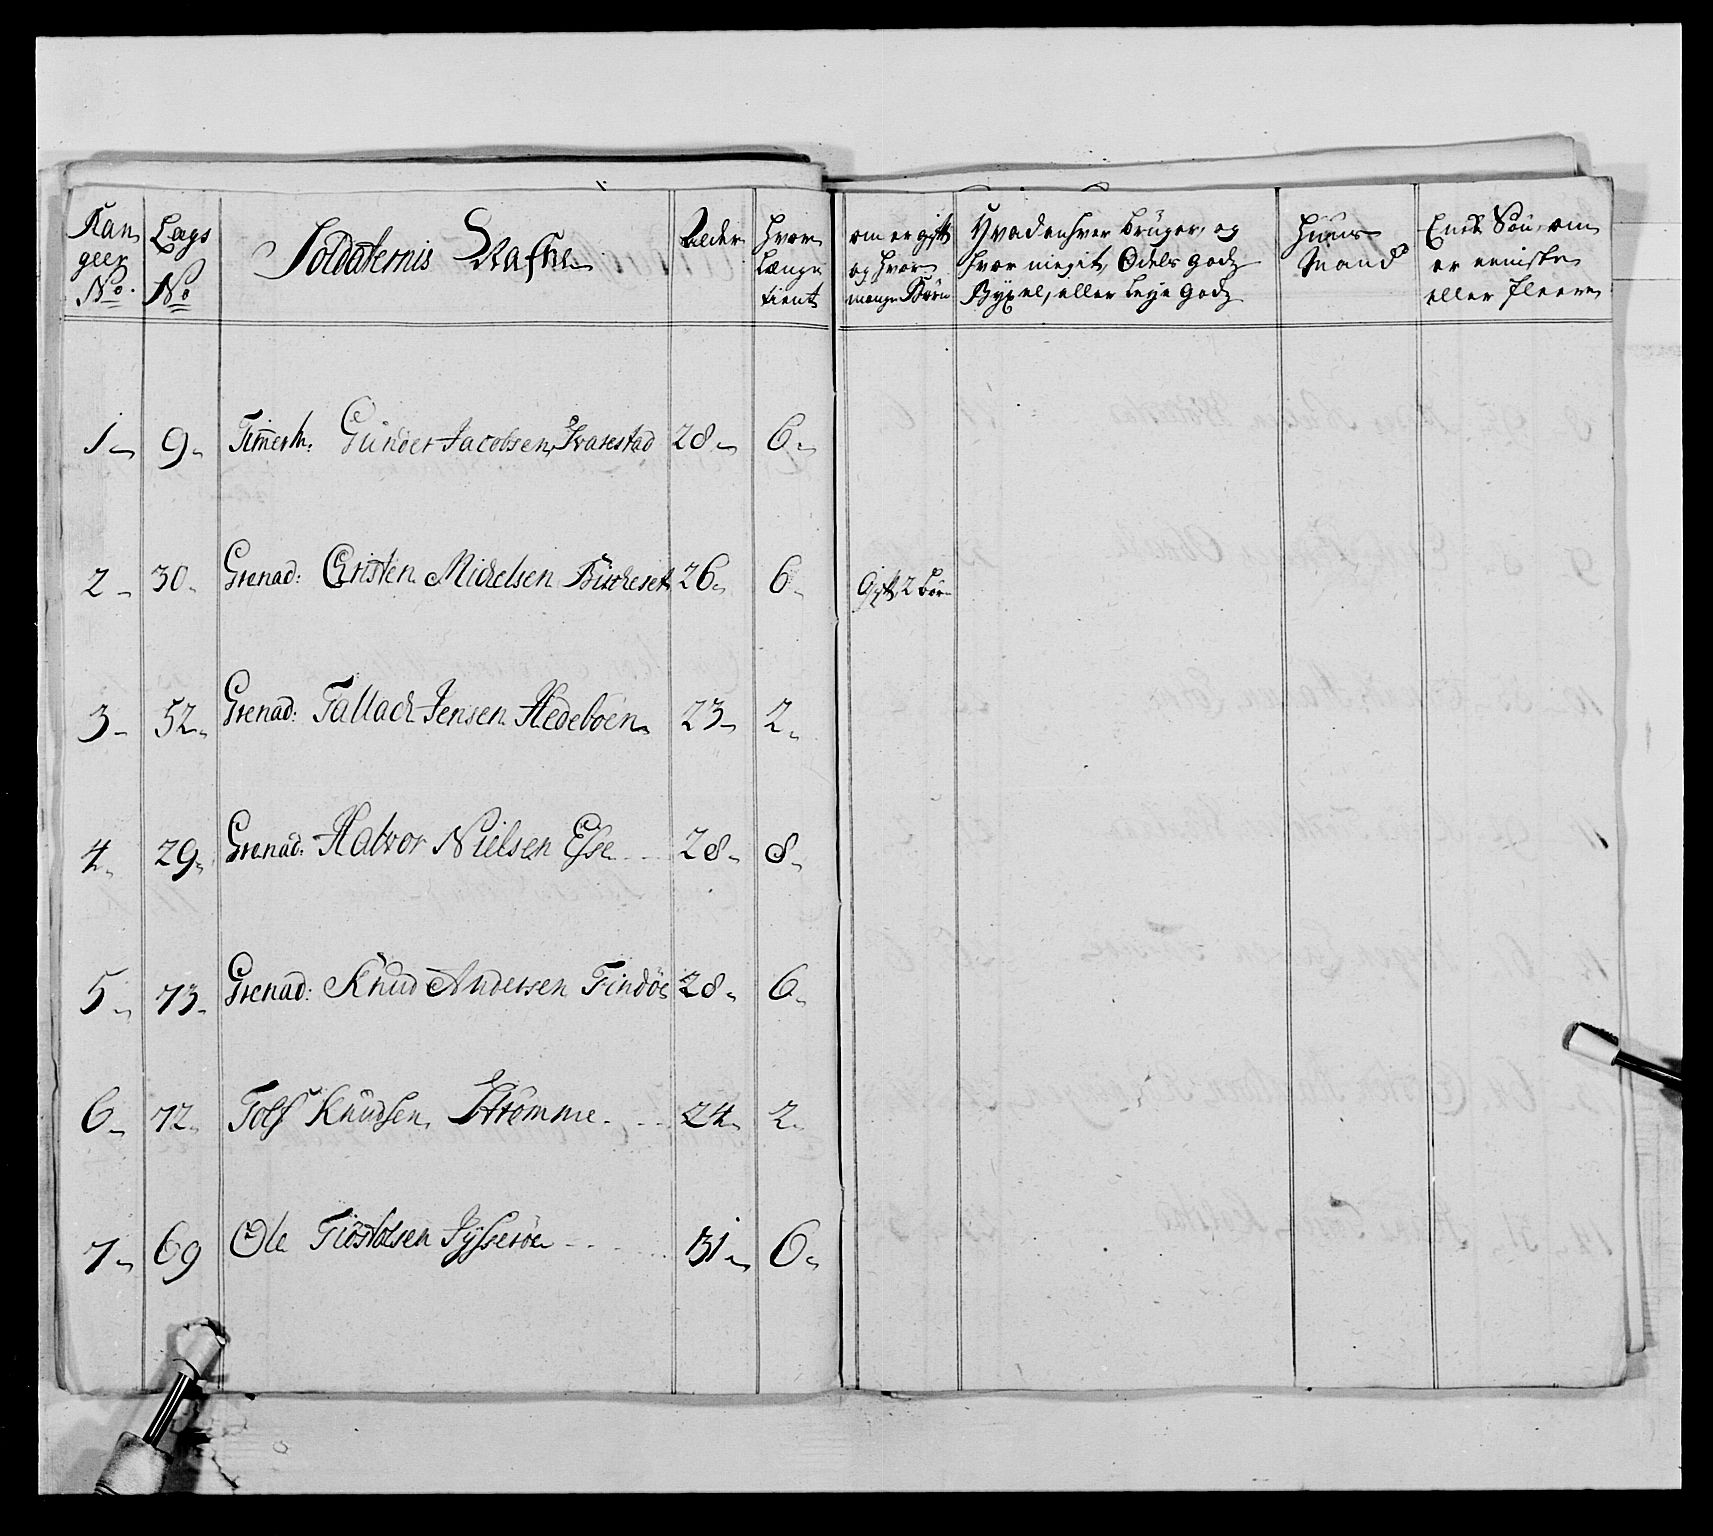 Ran
geer
No.
Laegs
No
Soldaternis Nafne
Alder
Hvor
Længe
tient
om er gift
og hvor
mange Børn
Hvad enhver bruger, og
hvor megit Odels godz
Byxel, eller Leye godz
Huus
Mand
Eniste Søn, om
er eeniste
eller fleere
1 9 Timerm: Gunder Jacobsen Svarestad 28 6
2 30 Grenad: Christen Michelsen 26 6 Gift 2 Børn
3 52 Grenad: Tallach Jensen Hedeboen 23 2
4 29 Grenad: Halvor Nielsen Esse 28 8
5 73 Grenad: Knud Andersen Findöe 28 6
6 72 Tolf Knudsen Strömme 24 2
7 69 Ole Tiöstolsen 31 6